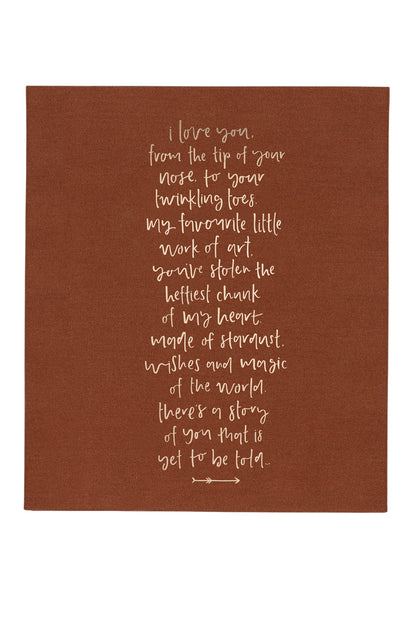 i love you,
from the tip of your
nose, to your
twinkling toes.
my favourite little
work of art,
you've stolen the
heftiest chunk
of my heart.
made of stardust,
wishes and magic
of the world.
there's a story
of you that is
yet to be told...